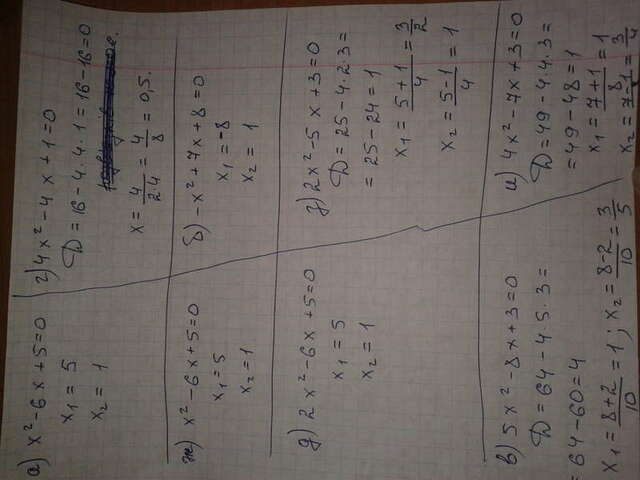 а) x² - 6x + 5 = 0
x₁ = 5
x₂ = 1
г) 4x² - 4x + 1 = 0
D = 16 - 4 · 4 · 1 = 16 - 16 = 0
x = 4/2·4 = 4/8 = 0,5.
ж) x² - 6x + 5 = 0
x₁ = 5
x₂ = 1
б) -x² + 7x + 8 = 0
x₁ = -8
x₂ = 1
д) 2x² - 6x + 5 = 0
x₁ = 5
x₂ = 1
з) 2x² - 5x + 3 = 0
D = 25 - 4 · 2 · 3 =
= 25 - 24 = 1
x₁ = 5+1/4 = 3/2
x₂ = 5-1/4 = 1
в) 5x² - 8x + 3 = 0
D = 64 - 4 · 5 · 3 =
= 64 - 60 = 4
x₁ = 8+2/10 = 1; x₂ = 8-2/10 = 3/5
и) 4x² - 7x + 3 = 0
D = 49 - 4 · 4 · 3 =
= 49 - 48 = 1
x₁ = 7+1/8 = 1
x₂ = 7-1/ = 3/4